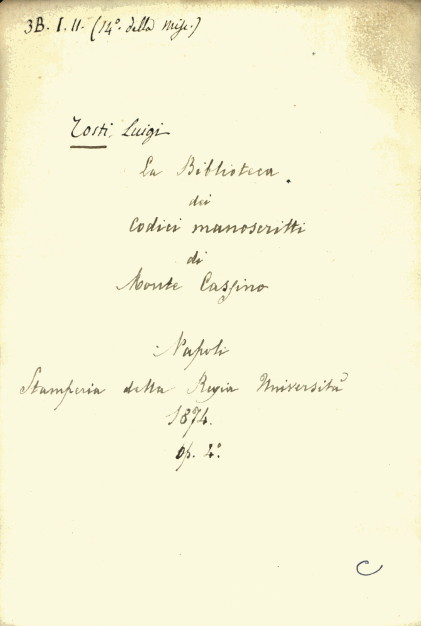 3B. I. 11. (14°. della Misc.)
Tosti Luigi
La Biblioteca
dei
codici manoscritti
di
Monte Cassino
Napoli
Stamperia della Regia Università
1874.
op. 4°.
C